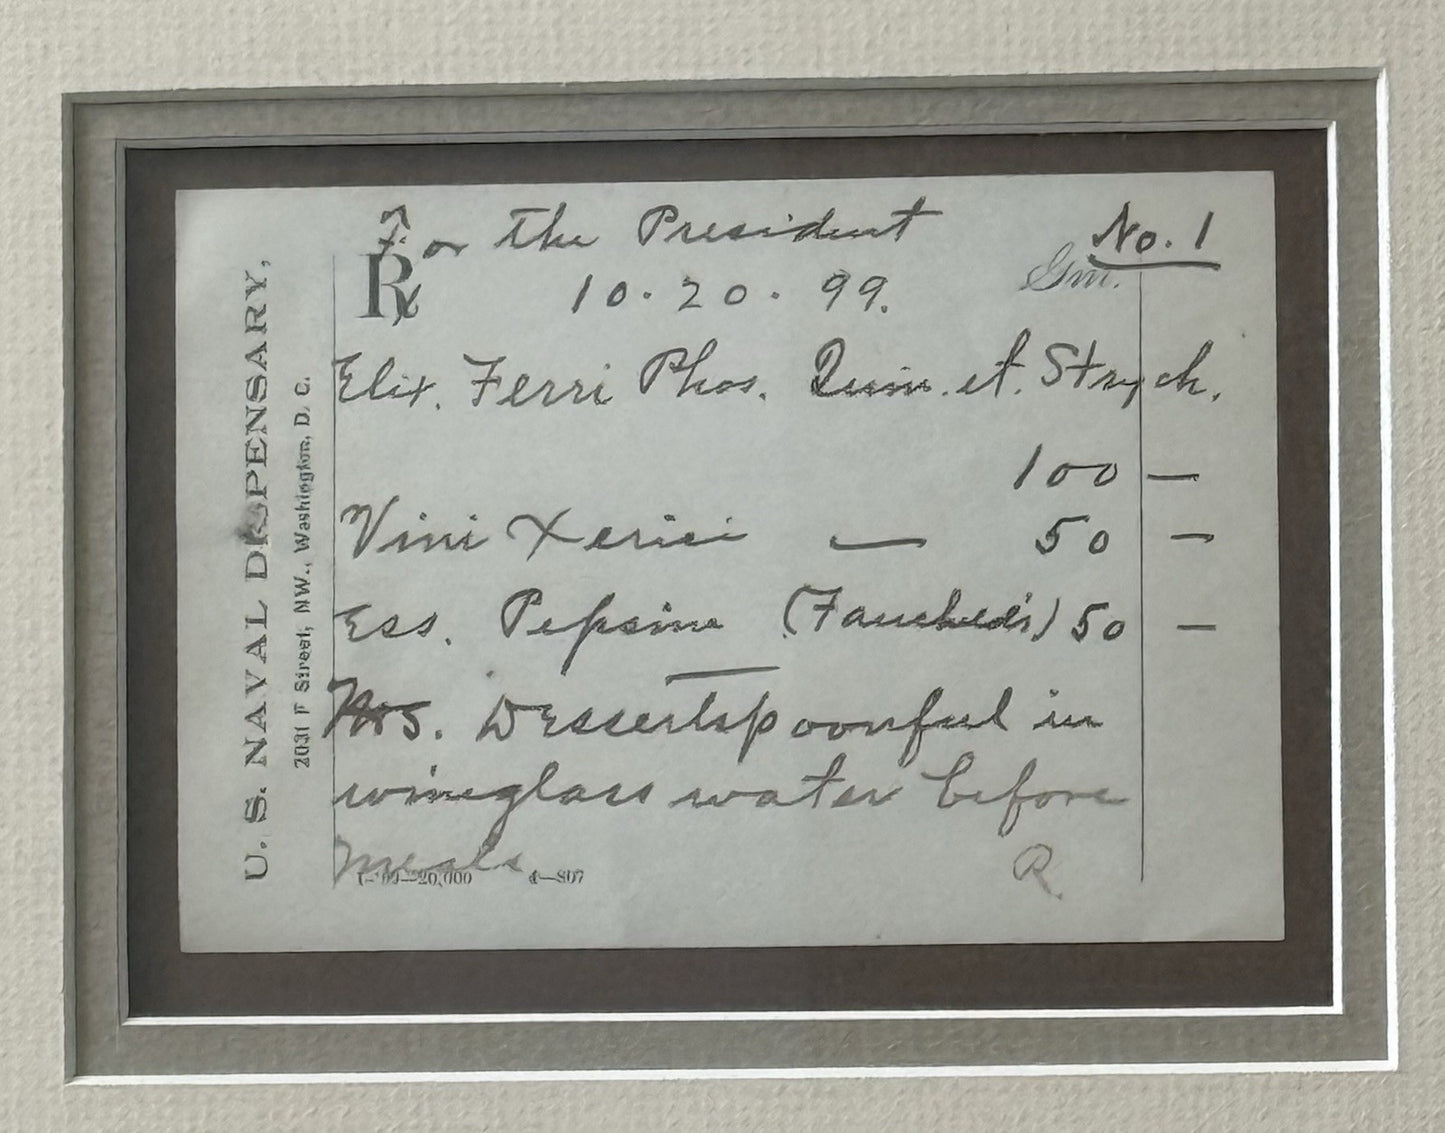 U. S. NAVAL DISPENSARY,
2031 F Street, NW., Washington, D. C.
For the President
No. 1
℞
10 · 20 · 99.
Gm.
Elix. Ferri Phos. Quin. et. Strych.
100 —
Vini Xerici — 50 —
Ess. Pepsine (Fairchild's) 50 —
. Dessertspoonful in
wineglass water before
meals
R
20,000 4—807